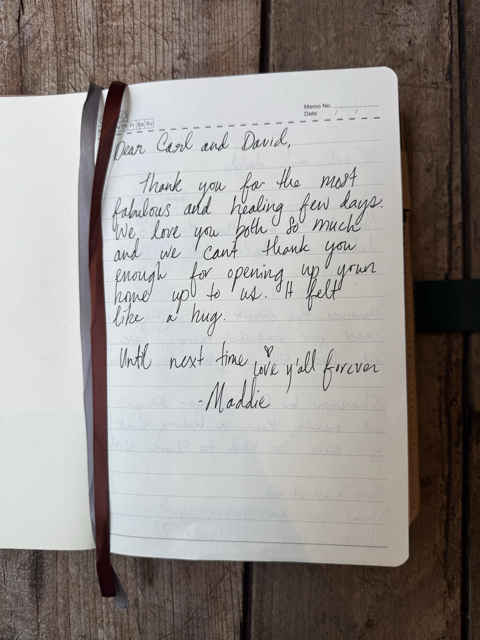 Memo No.
Date / /
Th Fr Sa Su
Dear Carl and David,
Thank you for the most
fabulous and healing few days.
We love you both so much
and we cant thank you
enough for opening up your
home up to us. It felt
like a hug.
Until next time
love y'all forever
-Maddie